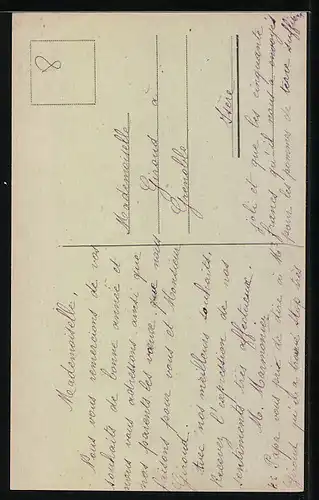 8
Mademoiselle
Giroud à
Grenoble
Isère
Mademoiselle,
Nous vous remercions de vos
souhaits de bonne année et
nous vous adressons ainsi que
nos parents les vœux que nous
faisons pour vous et Monsieur
Giroud.
Avec nos meilleurs souhaits.
Recevez l'expression de nos
sentiments très affectueux.
M. Marmonier
Papa vous prie de dire à Mr
Giroud qu'il a trouvé très
joli et que les cinquante
francs qu'il vous a envoyés
pour les pommes de terre